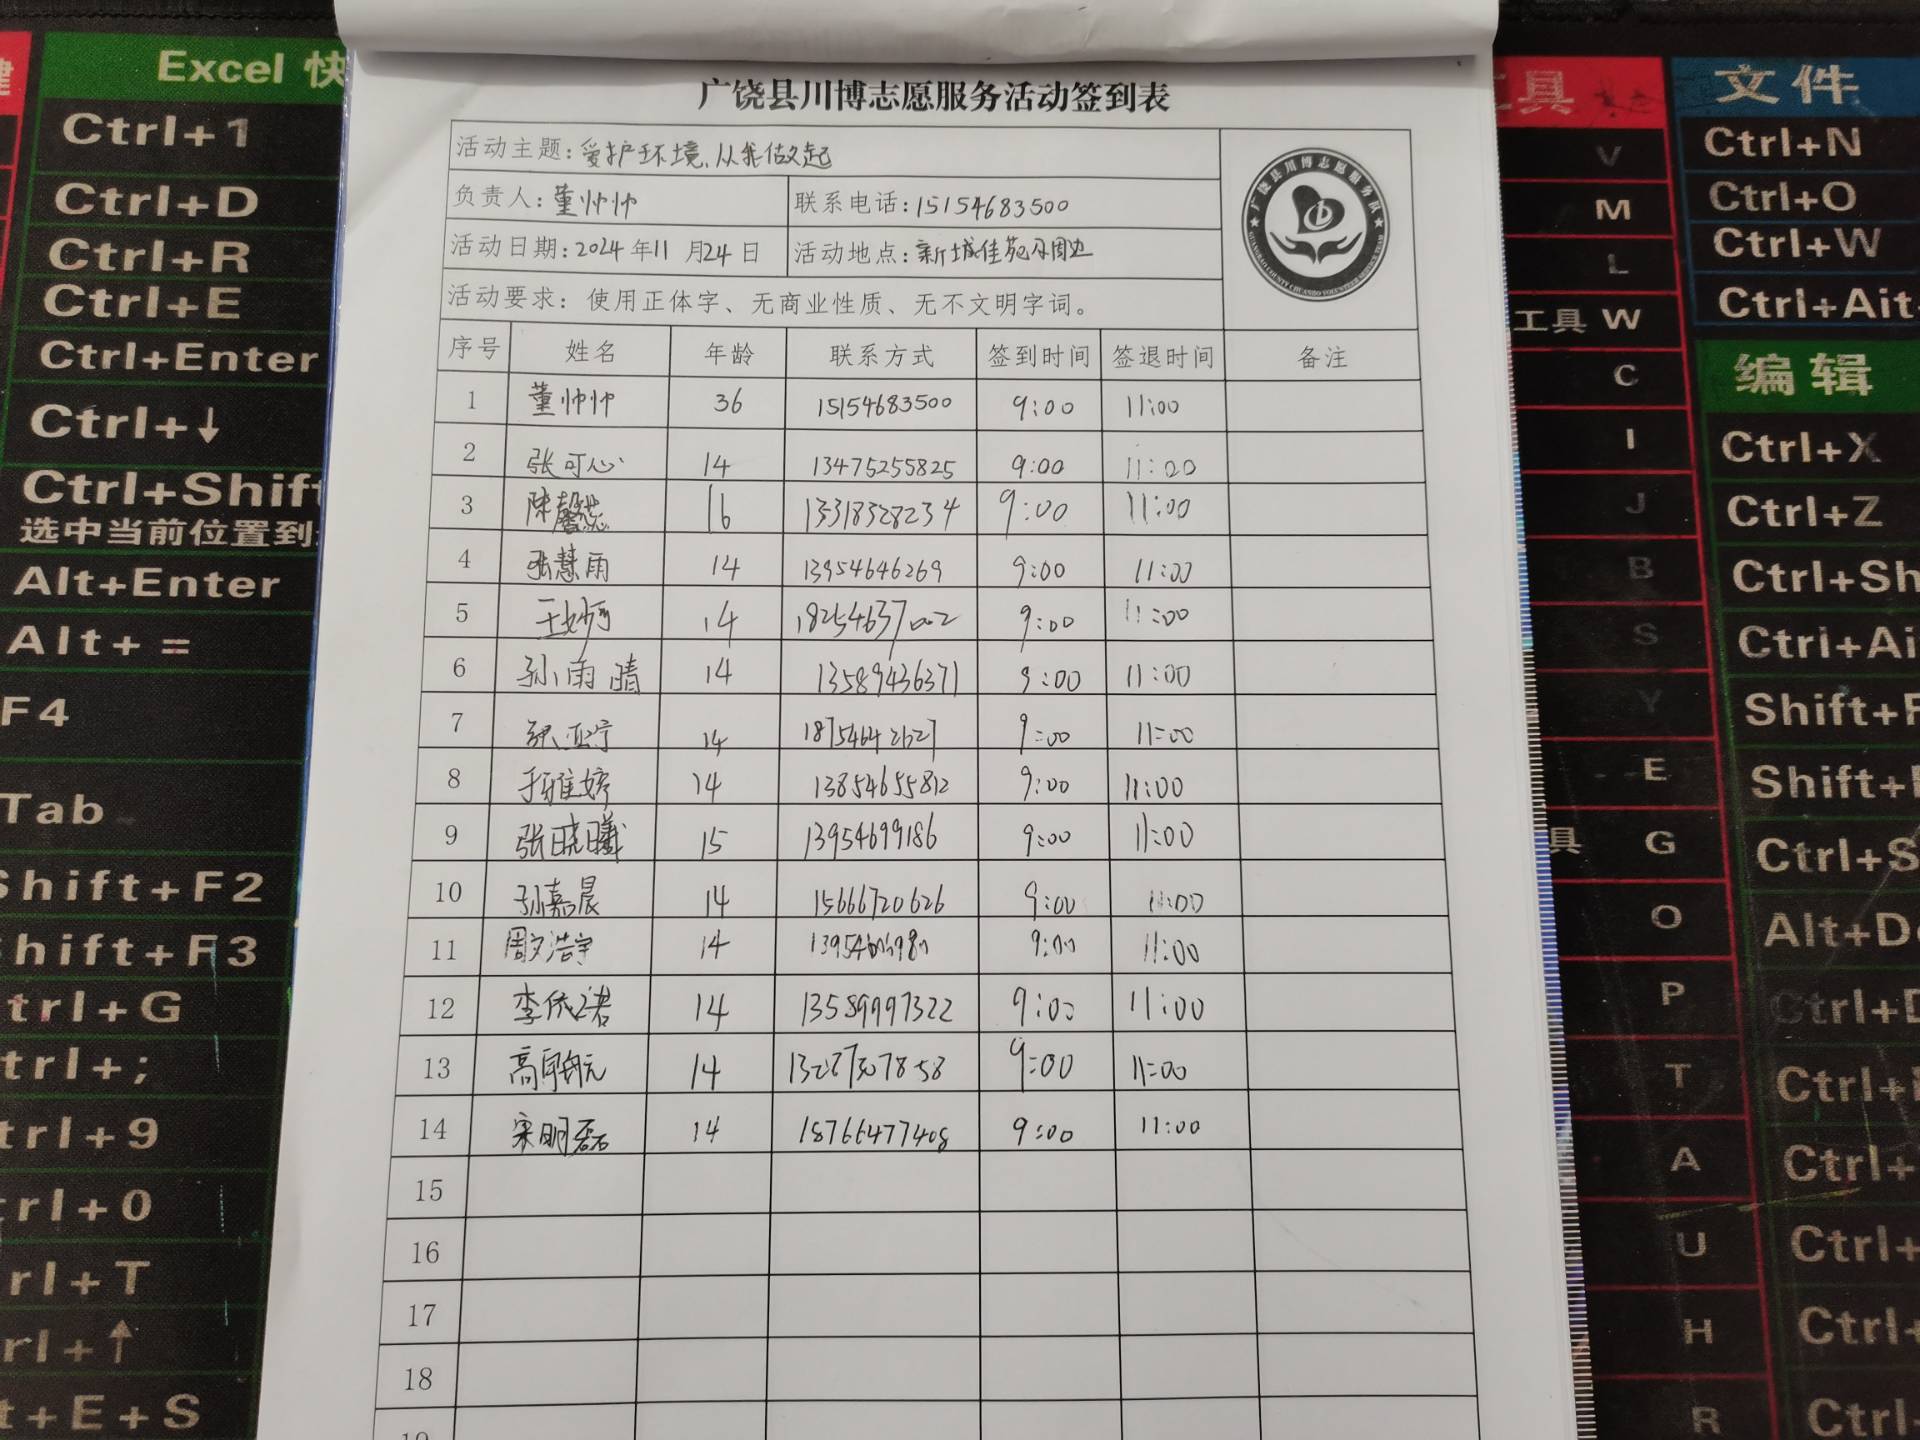 广饶县川博志愿服务活动签到表
活动主题：爱护环境，从我做起
负责人：董帅帅 联系电话：15154683500
活动日期：2024年11月24日 活动地点：新城佳苑及周边
活动要求：使用正体字、无商业性质、无不文明字词。
广饶县川博志愿服务队
序号 姓名 年龄 联系方式 签到时间 签退时间 备注
1 董帅帅 36 15154683500 9:00 11:00
2 张可心 14 13475255825 9:00 11:00
3 陈馨蕊 16 13318328234 9:00 11:00
4 张慧雨 14 13954646269 9:00 11:00
5 王妙可 14 18254637002 9:00 11:00
6 孙雨晴 14 13589436371 9:00 11:00
7 14 18754642627 9:00 11:00
8 于雅婷 14 13854655812 9:00 11:00
9 张晓曦 15 13954699186 9:00 11:00
10 孙嘉晨 14 15666720626 9:00 11:00
11 周文浩宇 14 9:00 11:00
12 李依诺 14 13589997322 9:00 11:00
13 高宇航 14 9:00 11:00
14 宋明磊 14 18766477408 9:00 11:00
15
16
17
18
19
Excel 快
Ctrl+1
Ctrl+D
Ctrl+R
Ctrl+E
Ctrl+Enter
Ctrl+↓
Ctrl+Shift
选中当前位置到
Alt+Enter
Alt+ =
F4
Tab
Shift+F2
Shift+F3
trl+G
trl+;
trl+9
rl+0
rl+T
rl+↑
t+E+S
工具
V
M
L
工具 W
C
I
J
B
S
Y
E
具 G
O
P
T
A
U
H
R
文件
Ctrl+N
Ctrl+O
Ctrl+W
Ctrl+Ait
编辑
Ctrl+X
Ctrl+Z
Ctrl+Sh
Ctrl+Ai
Shift+F
Shift+
Ctrl+S
Alt+De
Ctrl+D
Ctrl+
Ctrl+
Ctrl+
Ctrl+
Ctrl+